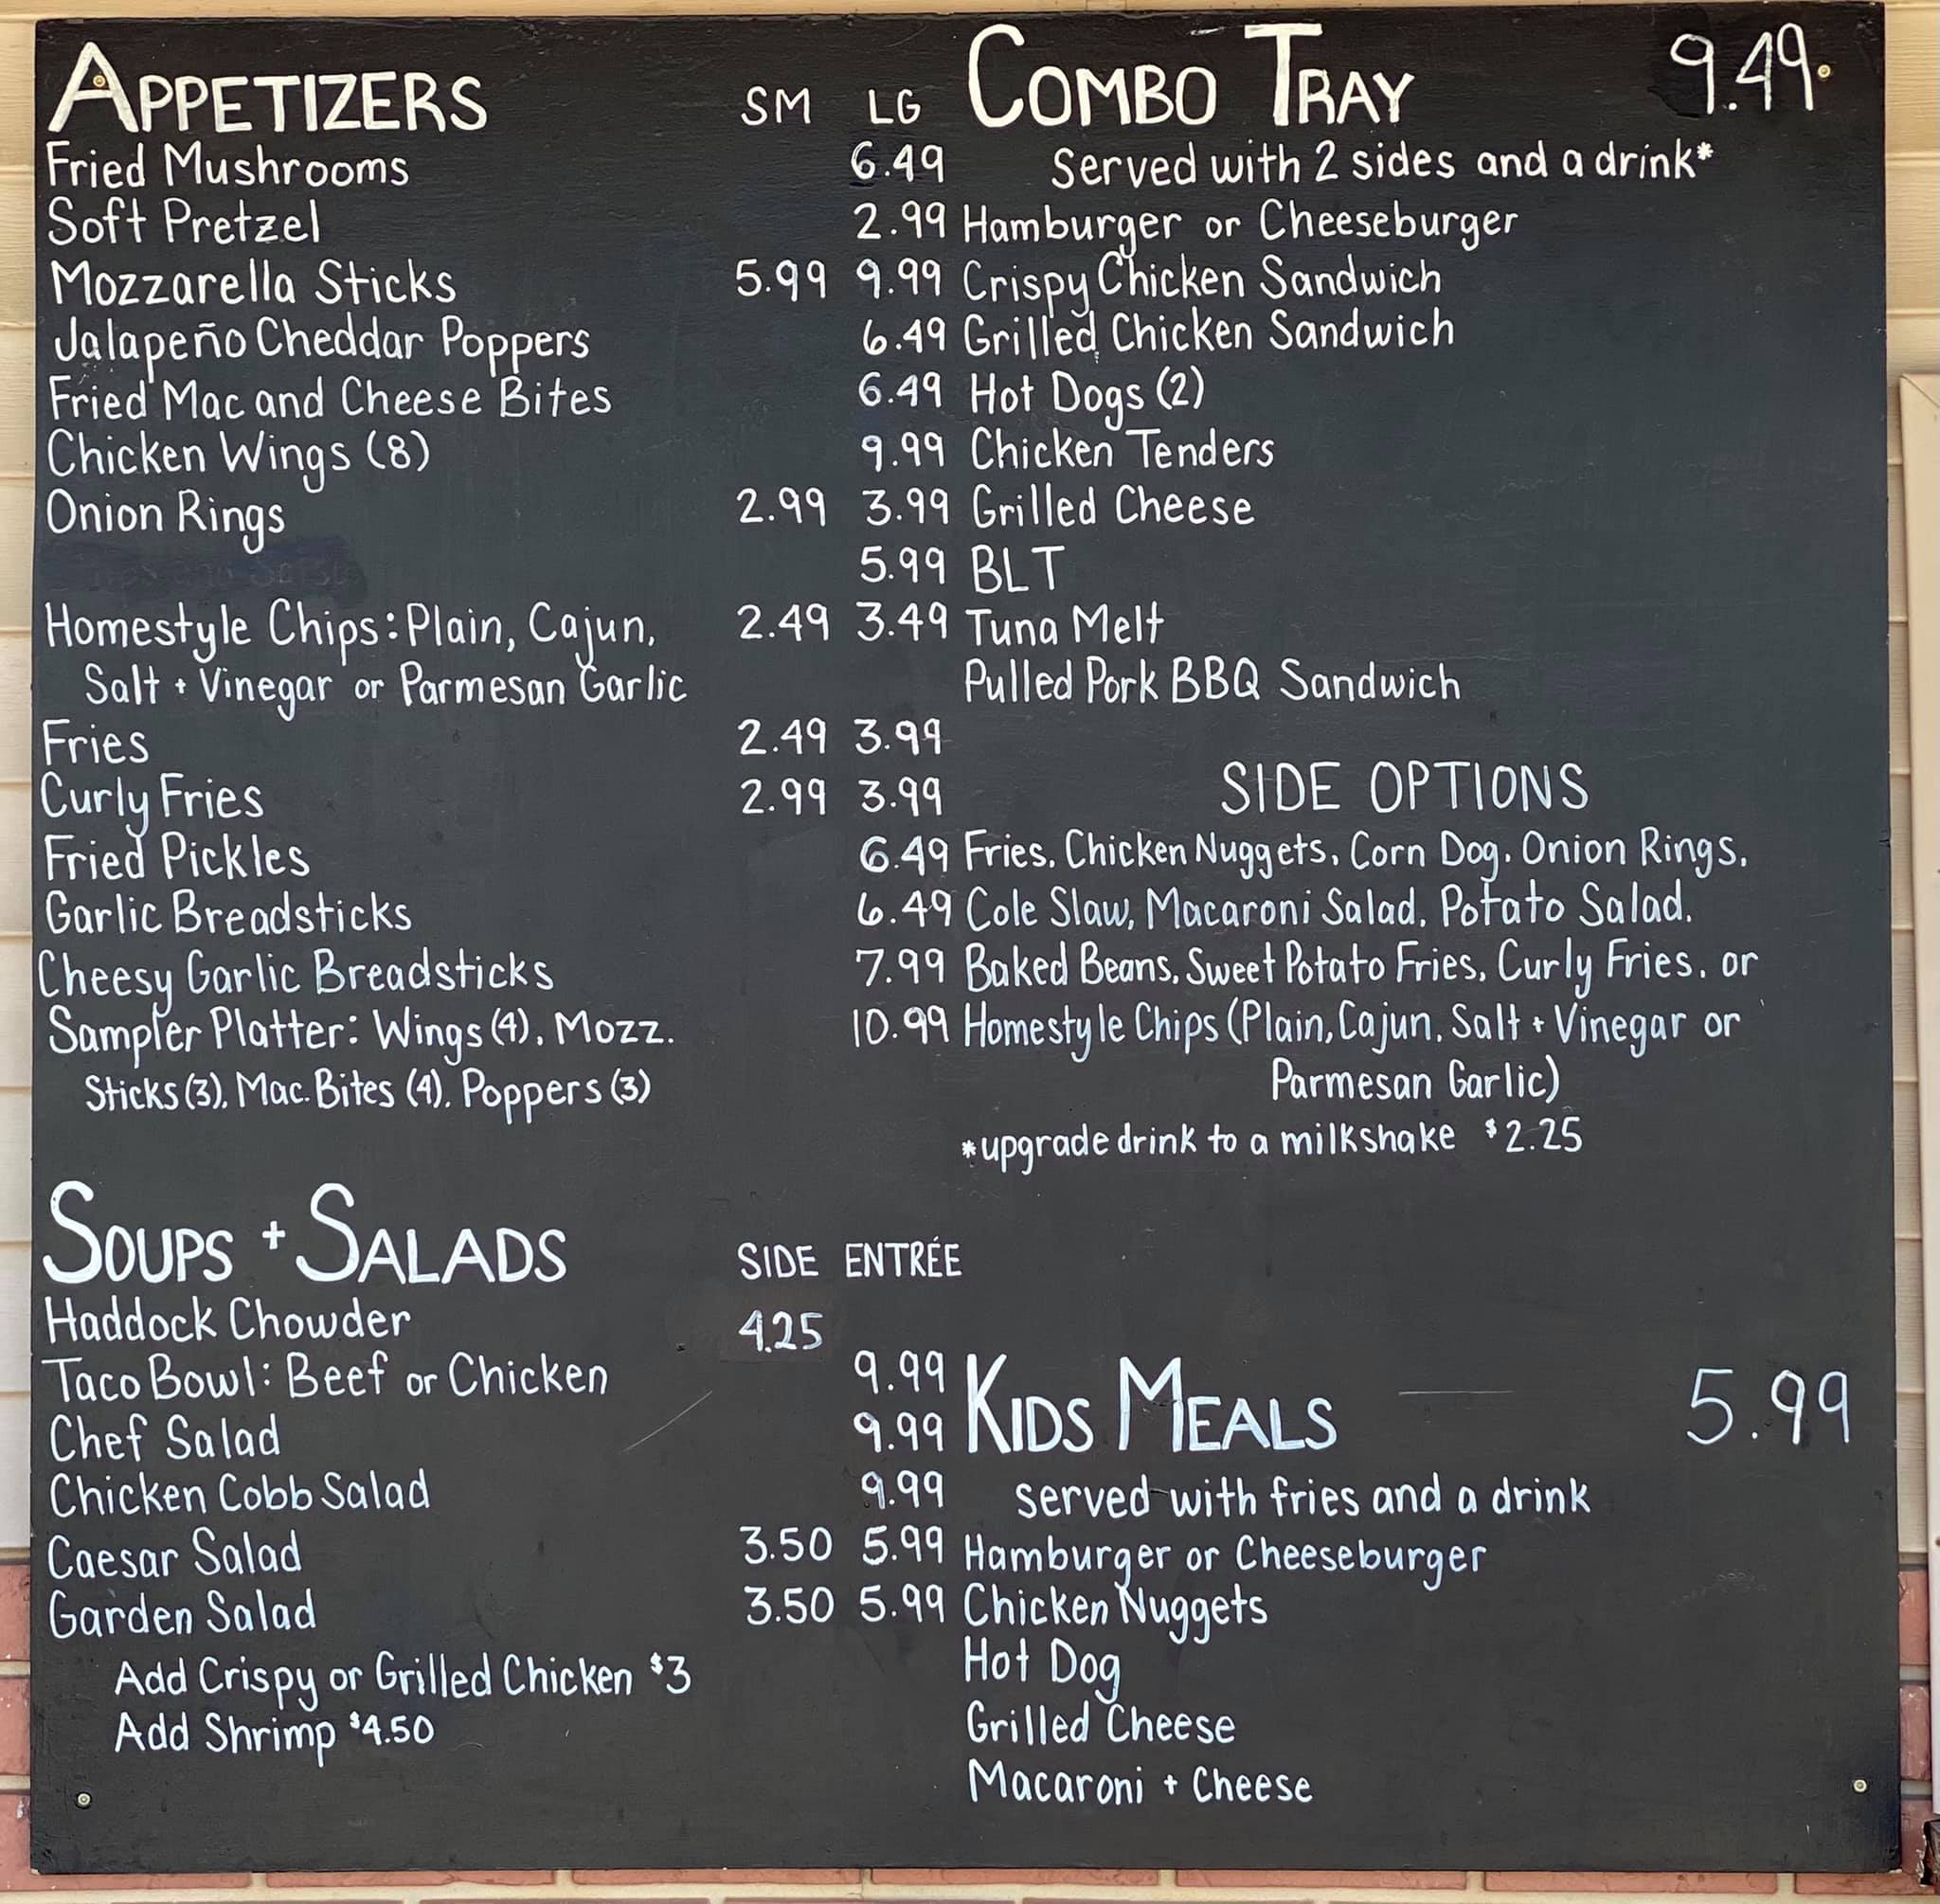 APPETIZERS SM LG
Fried Mushrooms 6.49
Soft Pretzel 2.99
Mozzarella Sticks 5.99 9.99
Jalapeño Cheddar Poppers 6.49
Fried Mac and Cheese Bites 6.49
Chicken Wings (8) 9.99
Onion Rings 2.99 3.99
5.99
Homestyle Chips: Plain, Cajun, 2.49 3.49
Salt + Vinegar or Parmesan Garlic
Fries 2.49 3.99
Curly Fries 2.99 3.99
Fried Pickles 6.49
Garlic Breadsticks 6.49
Cheesy Garlic Breadsticks 7.99
Sampler Platter: Wings (4), Mozz. 10.99
Sticks (3), Mac. Bites (4), Poppers (3)
SOUPS + SALADS SIDE ENTRÉE
Haddock Chowder 4.25
Taco Bowl: Beef or Chicken 9.99
Chef Salad 9.99
Chicken Cobb Salad 9.99
Caesar Salad 3.50 5.99
Garden Salad 3.50 5.99
Add Crispy or Grilled Chicken $3
Add Shrimp $4.50
COMBO TRAY 9.49
Served with 2 sides and a drink*
Hamburger or Cheeseburger
Crispy Chicken Sandwich
Grilled Chicken Sandwich
Hot Dogs (2)
Chicken Tenders
Grilled Cheese
BLT
Tuna Melt
Pulled Pork BBQ Sandwich
SIDE OPTIONS
Fries, Chicken Nuggets, Corn Dog, Onion Rings,
Cole Slaw, Macaroni Salad, Potato Salad,
Baked Beans, Sweet Potato Fries, Curly Fries, or
Homestyle Chips (Plain, Cajun, Salt + Vinegar or
Parmesan Garlic)
*upgrade drink to a milkshake $2.25
KIDS MEALS 5.99
served with fries and a drink
Hamburger or Cheeseburger
Chicken Nuggets
Hot Dog
Grilled Cheese
Macaroni + Cheese